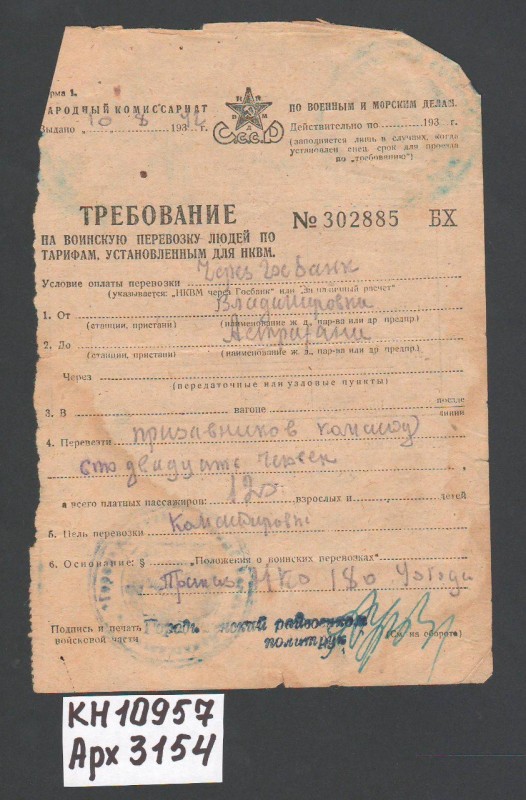 рма 1.
АРОДНЫЙ КОМИССАРИАТ
ПО ВОЕННЫМ И МОРСКИМ ДЕЛАМ.
Выдано 10 8 193 42 г.
Действительно по 193 г.
(заполняется лишь в случаях, когда
установлен спец. срок для проезда
по „требованию“)
СССР
ТРЕБОВАНИЕ
№ 302885 БХ
НА ВОИНСКУЮ ПЕРЕВОЗКУ ЛЮДЕЙ ПО
ТАРИФАМ, УСТАНОВЛЕННЫМ ДЛЯ НКВМ.
Условие оплаты перевозки Через Госбанк
(указывается: „НКВМ через Госбанк“ или „За наличный расчет“
1. От Владимировки
(станции, пристани) (наименование ж. д., пар-ва или др. предпр.)
2. До Астрахани
(станции, пристани) (наименование ж. д., пар-ва или др. предпр.)
Через
(передаточные или узловые пункты)
3. В вагоне поезде
линии
4. Перевезти призавников команд
сто двадцать человек
а всего платных пассажиров: 120 взрослых и детей
5. Цель перевозки Командировка
6. Основание: § „Положения о воинских перевозках“
НКО 180
Подпись и печать
войсковой части
райвоенком
политрук
(См. на обороте)
КН10957
Арх 3154